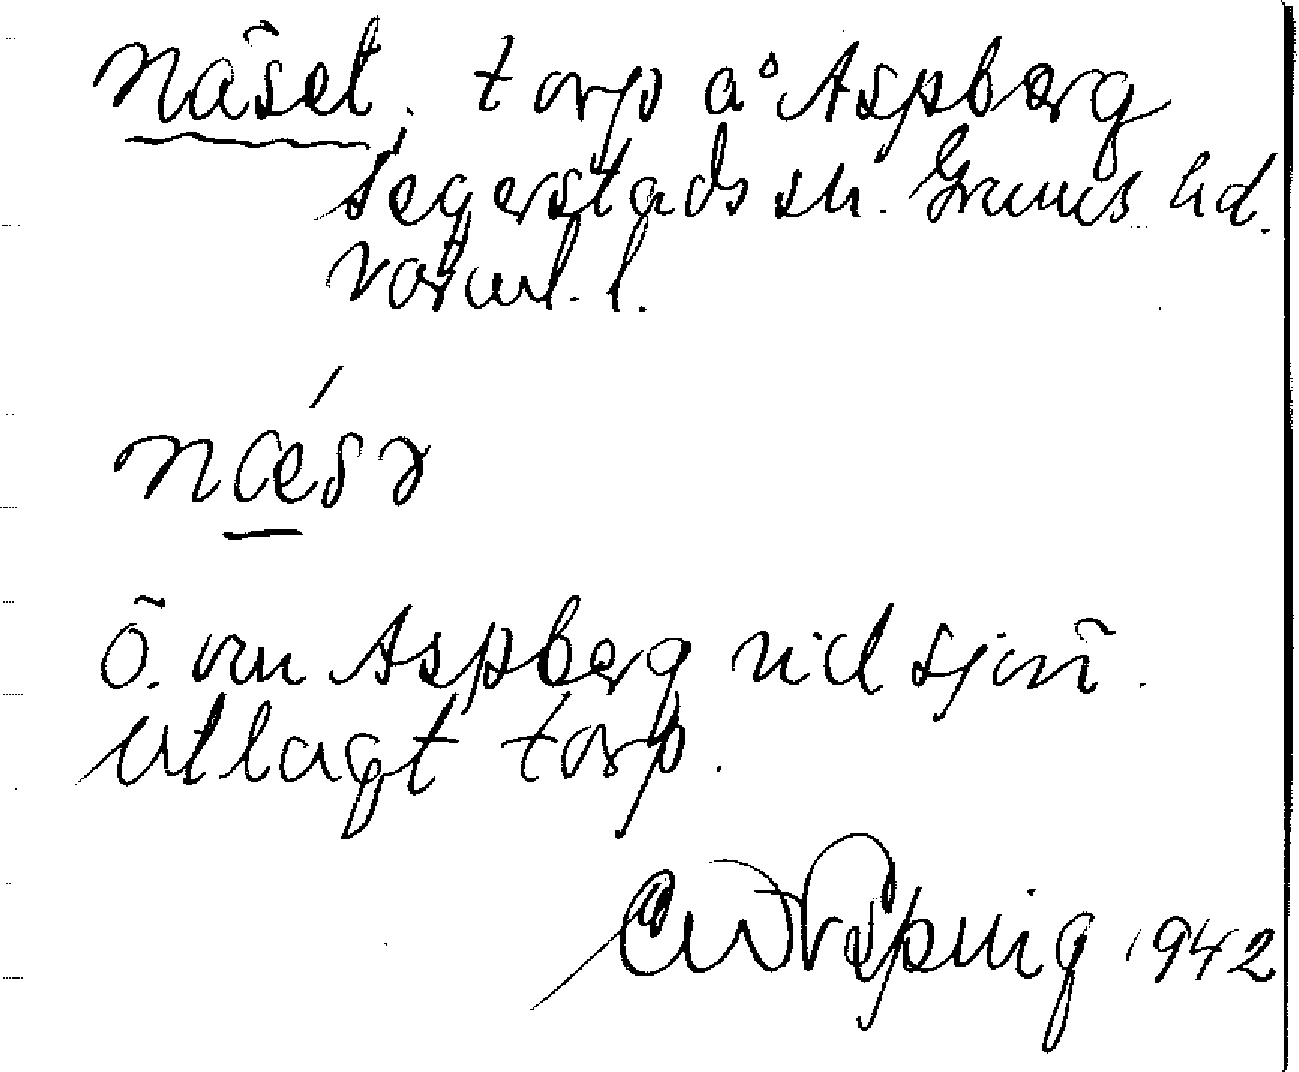 Näset, torp å Aspberg
Segerstads sn. Grums hd.
Värml. l.
næ´sə
Ö. om Aspberg vid sjön.
Utlagt torp.
1942